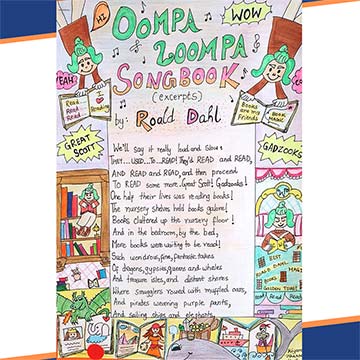 HI
OOMPA
LOOMPA
WOW
SONGBOOK
(excerpts)
by: Roald Dahl
YEAH
Read
Read
Read
I
Reading
Books
are my
Friends
Book
MAGIC
GREAT
SCOTT
GADZOOKS
We'll say it really loud and slow:
THEY...USED...TO...READ! They'd READ and READ,
AND READ and READ, and then proceed
TO READ some more, Great Scott! Gadzooks!
One half their lives was reading books!
The nursery shelves held books galore!
Books cluttered up the nursery floor!
And in the bedroom, by the bed,
More books were waiting to be read!
Such wondrous, fine, fantastic tales
Of dragons, gypsies, queens and whales
And treasure isles, and distant shores
Where smugglers rowed with muffled oars,
And pirates wearing purple pants,
And sailing ships and elephants,
BEST
ROALD DAHL
BOOKS
GOLDEN TICKET